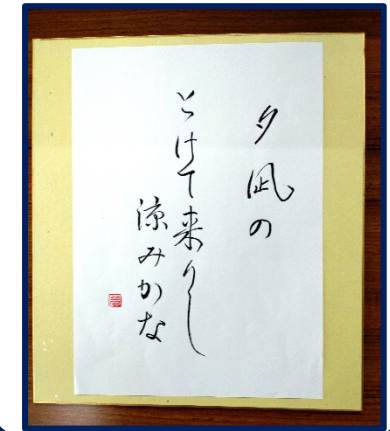 夕凪の
とけて来りし
涼みかな